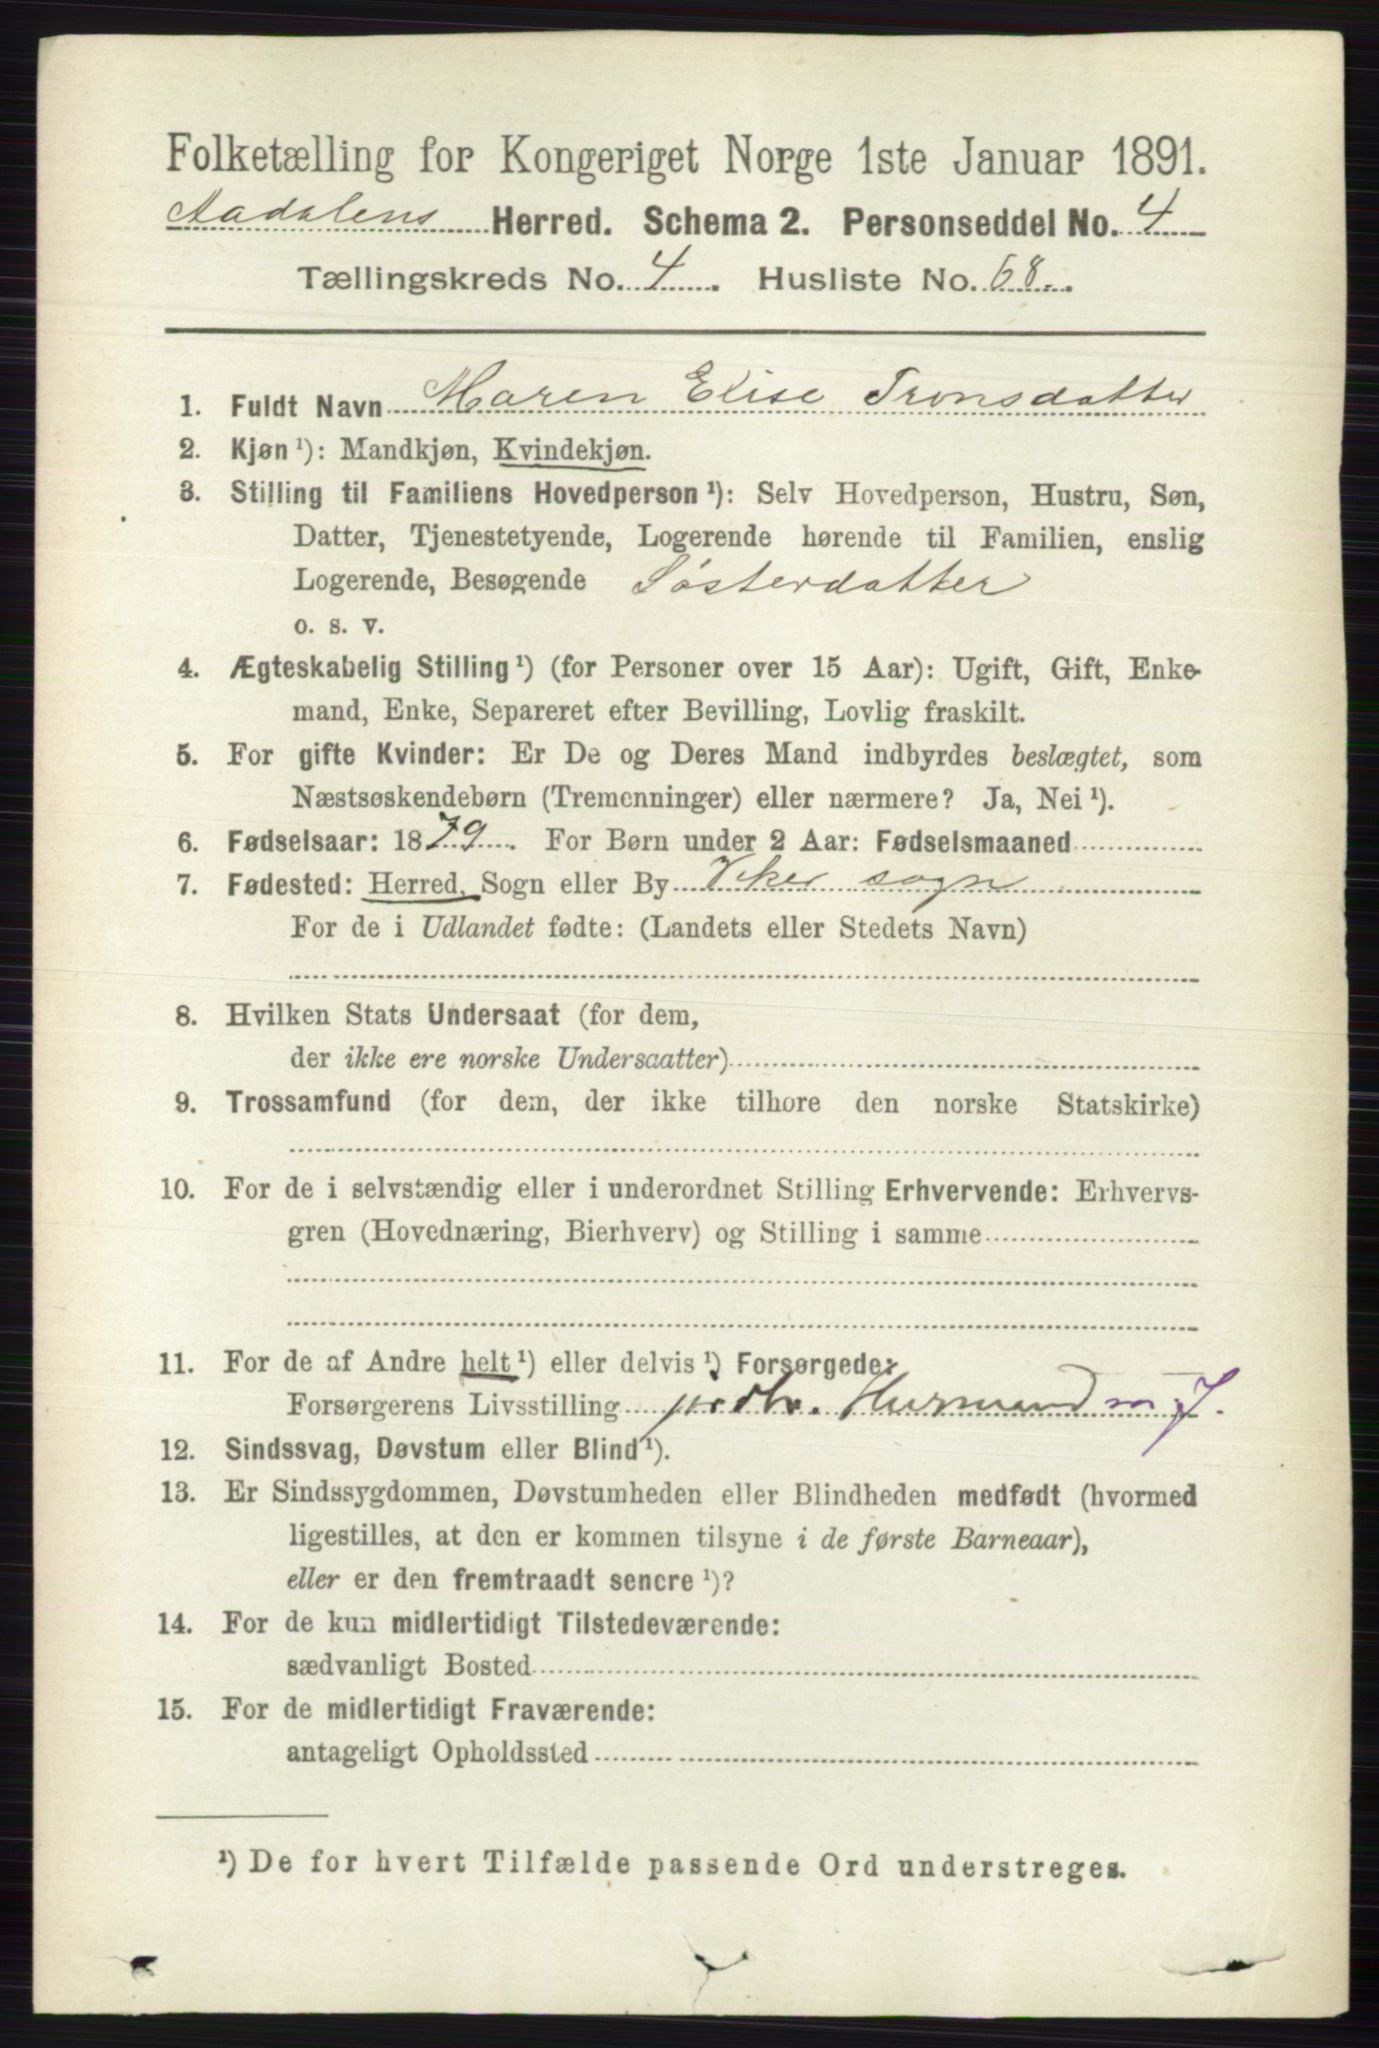 Folketælling for Kongeriget Norge 1ste Januar 1891.
Aadalens Herred. Schema 2. Personseddel No. 4
Tællingskreds No. 4. Husliste No. 68.
1. Fuldt Navn Maren Elise Tronsdatter
2. Kjøn ¹): Mandkjøn, Kvindekjøn.
3. Stilling til Familiens Hovedperson ¹): Selv Hovedperson, Hustru, Søn,
Datter, Tjenestetyende, Logerende hørende til Familien, enslig
Logerende, Besøgende Søsterdatter
o. s. v.
4. Ægteskabelig Stilling ¹) (for Personer over 15 Aar): Ugift, Gift, Enke-
mand, Enke, Separeret efter Bevilling, Lovlig fraskilt.
5. For gifte Kvinder: Er De og Deres Mand indbyrdes beslægtet, som
Næstsøskendebørn (Tremenninger) eller nærmere? Ja, Nei ¹).
6. Fødselsaar: 1879. For Børn under 2 Aar: Fødselsmaaned
7. Fødested: Herred, Sogn eller By Viker sogn
For de i Udlandet fødte: (Landets eller Stedets Navn)
8. Hvilken Stats Undersaat (for dem,
der ikke ere norske Undersaatter)
9. Trossamfund (for dem, der ikke tilhore den norske Statskirke)
10. For de i selvstændig eller i underordnet Stilling Erhvervende: Erhvervs-
gren (Hovednæring, Bierhverv) og Stilling i samme
11. For de af Andre helt ¹) eller delvis ¹) Forsørgede:
Forsørgerens Livsstilling Husmand m J.
12. Sindssvag, Døvstum eller Blind ¹).
13. Er Sindssygdommen, Døvstumheden eller Blindheden medfødt (hvormed
ligestilles, at den er kommen tilsyne i de første Barneaar),
eller er den fremtraadt senere ¹)?
14. For de kun midlertidigt Tilstedeværende:
sædvanligt Bosted
15. For de midlertidigt Fraværende:
antageligt Opholdssted
¹) De for hvert Tilfælde passende Ord understreges.